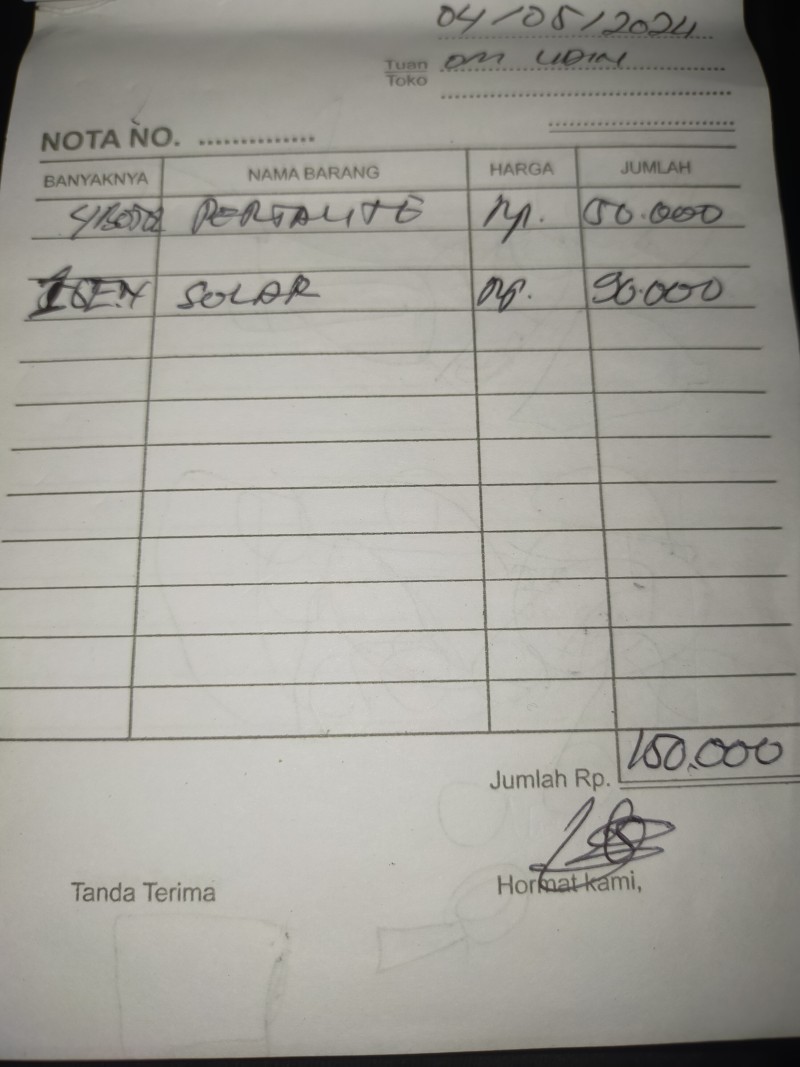 04/05/2024
Tuan OM UDIN
Toko
NOTA NO.
BANYAKNYA NAMA BARANG HARGA JUMLAH
PERTALITE Rp. 60.000
SOLAR Rp. 90.000
Jumlah Rp. 150.000
Tanda Terima Hormat kami,